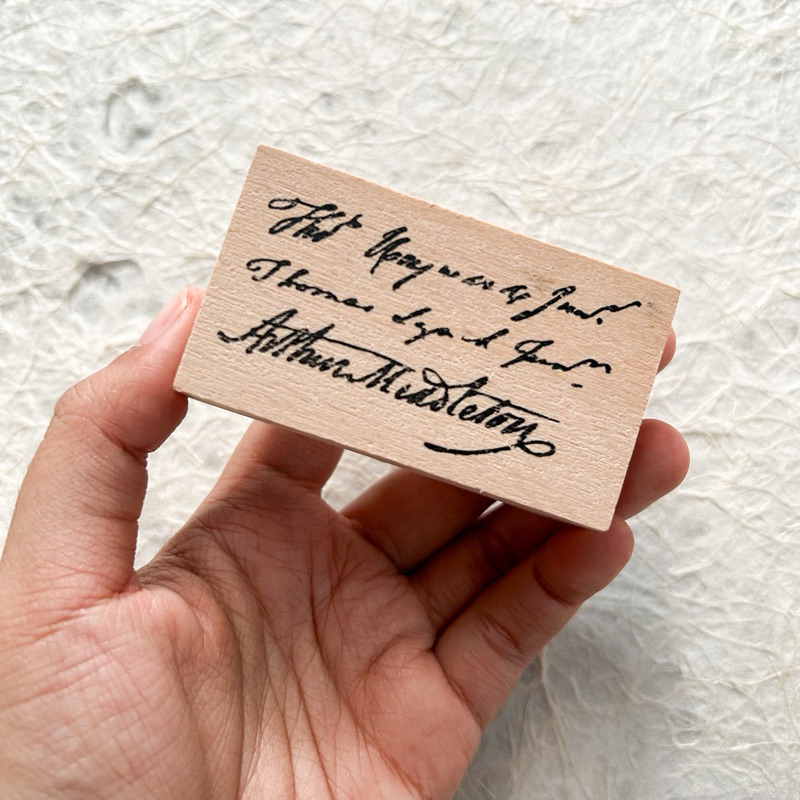 Thos Heyward Junr.
Thomas Lynch Junr.
Arthur Middleton